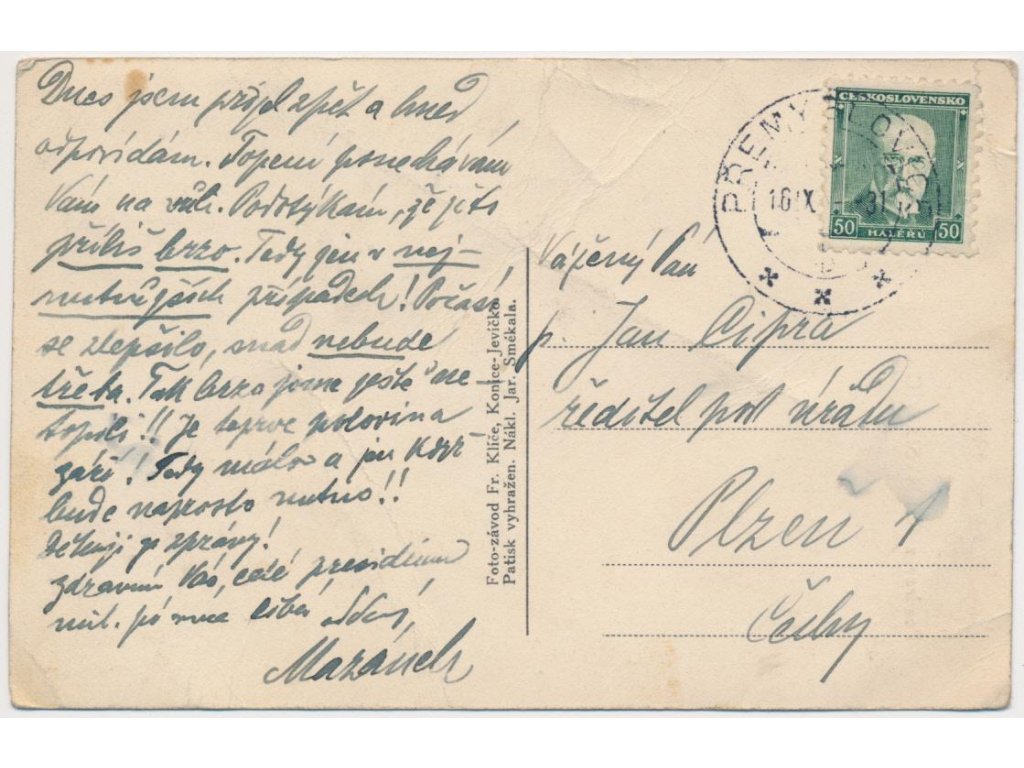 Dnes jsem přijel zpět a hned
odpovídám. Topení ponechávám
Vám na vůli. Podotýkám, že je to
příliš brzo. Tedy jen v nej-
nutnějších případech! Počasí
se zlepšilo, snad nebude
třeba. Tak brzo jsme ještě ne-
topili!! Je teprve polovina
září! Tedy málo a jen když
bude naprosto nutno!!
Děkuji za zprávy!
zdraví Vás, celé presidium
mil. pí ruce líbá
Mazánek
Foto-závod Fr. Klíče, Konice-Jevíčko.
Patisk vyhražen. Nákl. Jar. Smékala.
ČESKOSLOVENSKO
50 HALÉŘŮ 50
PŘEMYSLOV
16.IX 31
Vážený Pán
p. Jan Cipra
ředitel pošt úřadu
Plzeň 1
Čechy